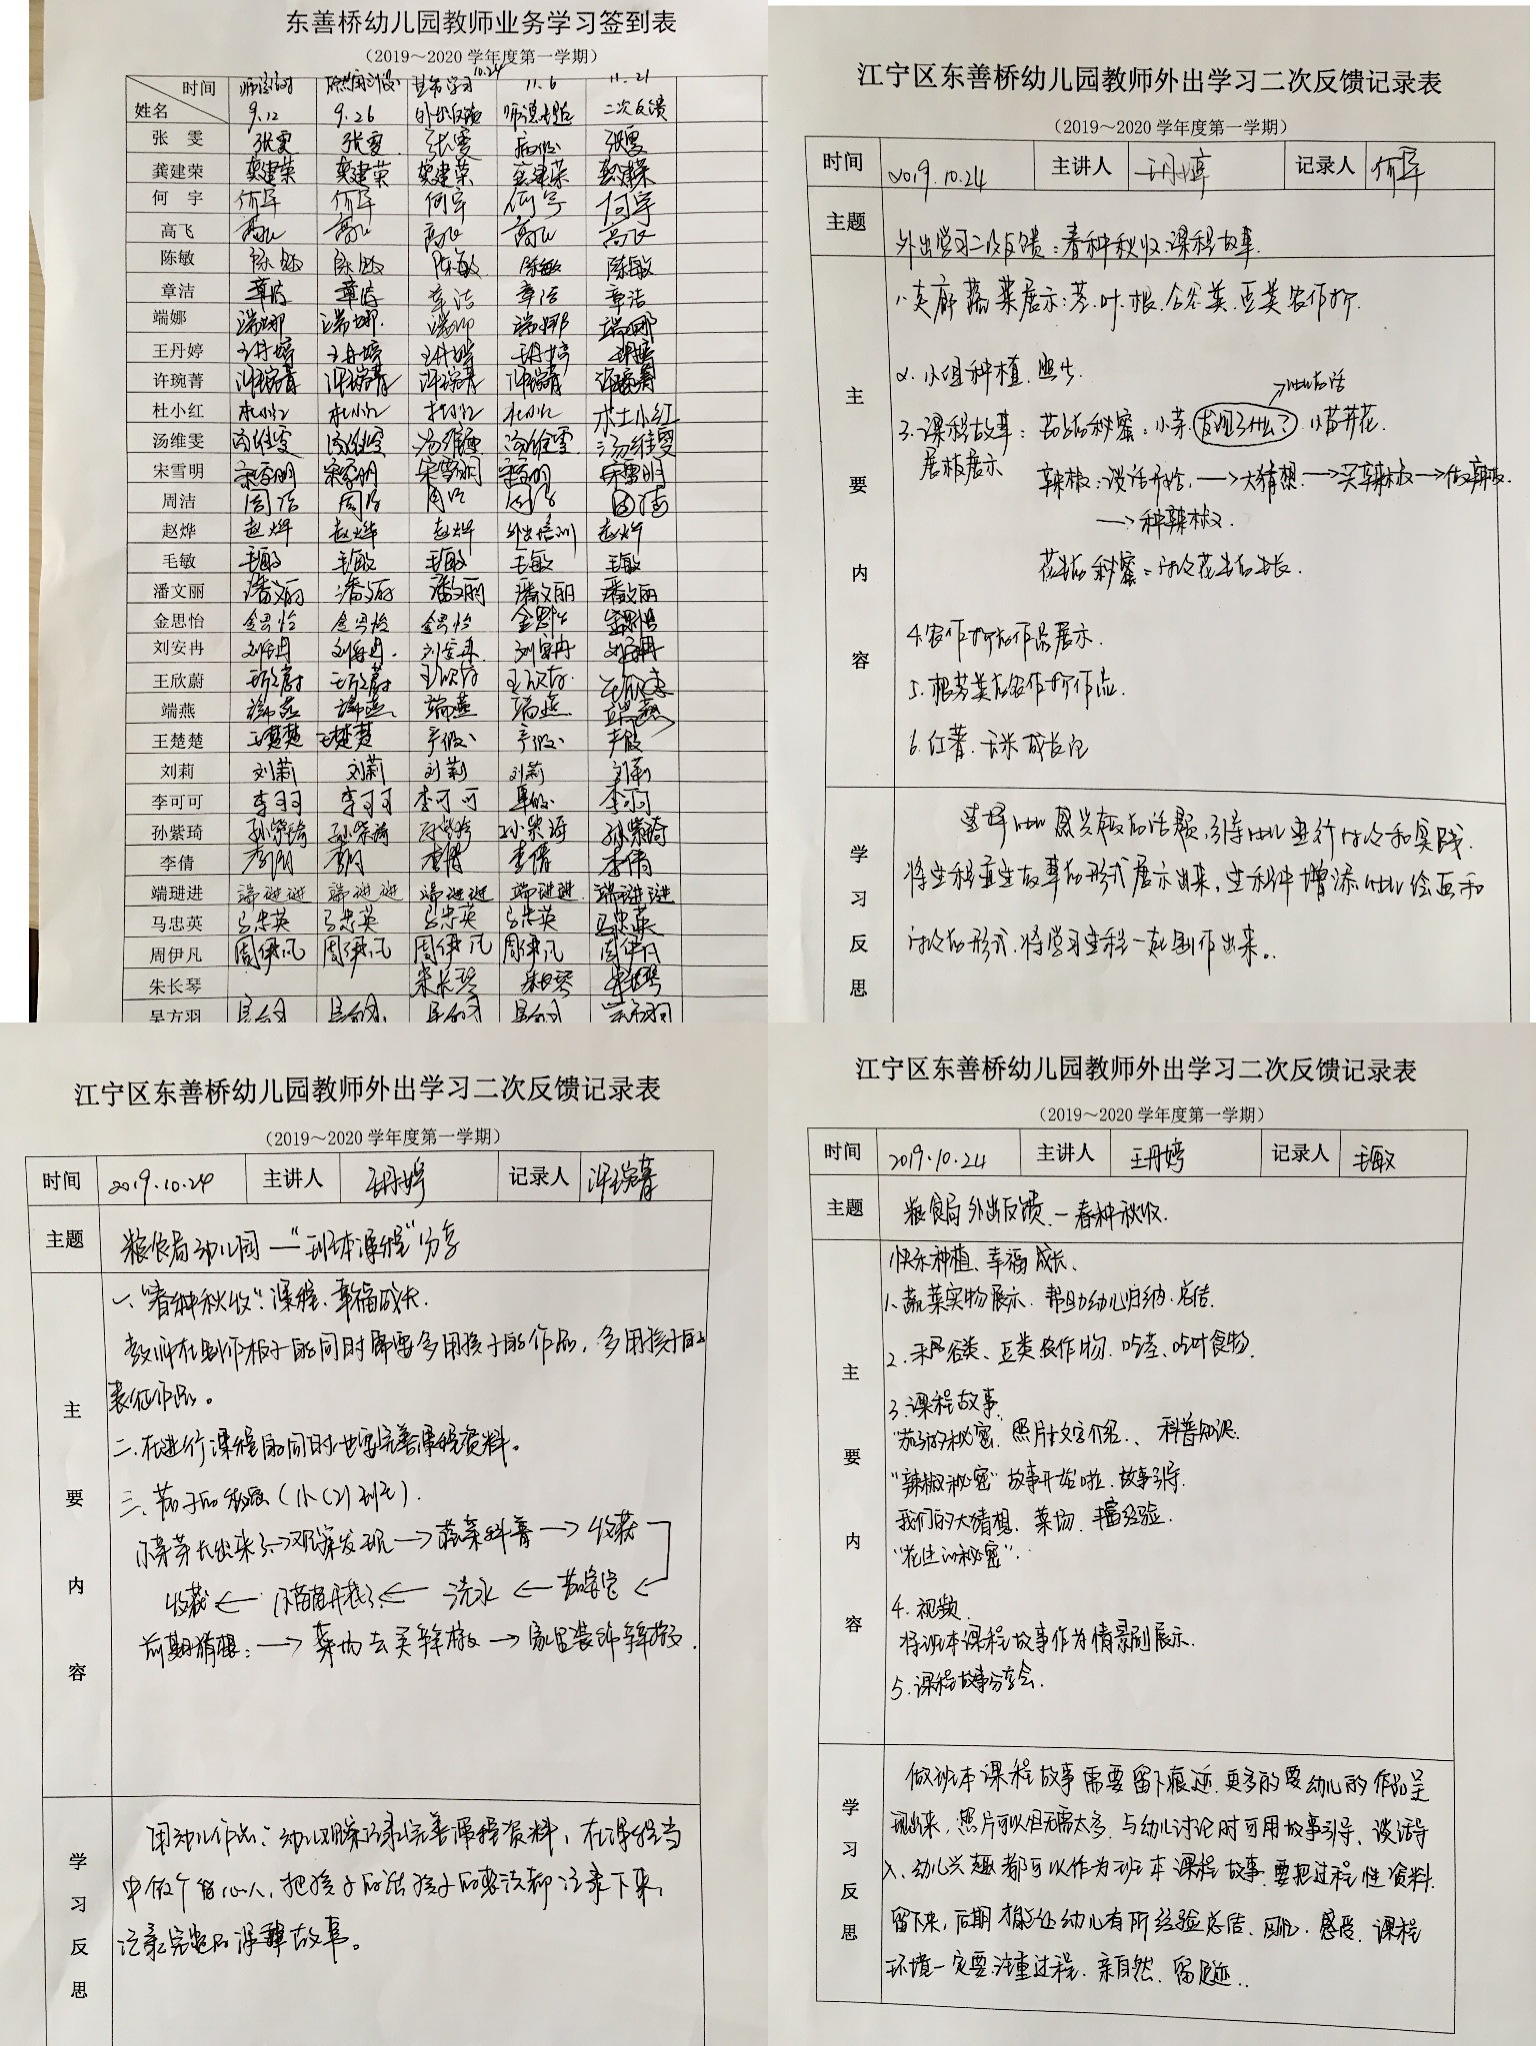 东善桥幼儿园教师业务学习签到表
（2019～2020学年度第一学期）
时间
姓名
9.12 9.26 外出反馈 10.24 11.6 师德专题 11.21 二次反馈
张雯 张雯 张雯 张雯 病假 张雯
龚建荣 龚建荣 龚建荣 龚建荣 龚建荣 龚建荣
何宇 何宇 何宇 何宇 何宇 何宇
高飞 高飞 高飞 高飞 高飞 高飞
陈敏 陈敏 陈敏 陈敏 陈敏 陈敏
章洁 章洁 章洁 章洁 章洁 章洁
端娜 端娜 端娜 端娜 端娜 端娜
王丹婷 王丹婷 王丹婷 王丹婷 王丹婷 王丹婷
许琬菁 许琬菁 许琬菁 许琬菁 许琬菁 许琬菁
杜小红 杜小红 杜小红 杜小红 杜小红 杜小红
汤维雯 汤维雯 汤维雯 汤维雯 汤维雯 汤维雯
宋雪明 宋雪明 宋雪明 宋雪明 宋雪明 宋雪明
周洁 周洁 周洁 周洁 周洁 周洁
赵烨 赵烨 赵烨 赵烨 外出培训 赵烨
毛敏 毛敏 毛敏 毛敏 毛敏 毛敏
潘文丽 潘文丽 潘文丽 潘文丽 潘文丽 潘文丽
金思怡 金思怡 金思怡 金思怡 金思怡 金思怡
刘安冉 刘安冉 刘安冉 刘安冉 刘安冉 刘安冉
王欣蔚 王欣蔚 王欣蔚 王欣蔚 王欣蔚 王欣蔚
端燕 端燕 端燕 端燕 端燕 端燕
王楚楚 王楚楚 王楚楚 产假 产假 产假
刘莉 刘莉 刘莉 刘莉 刘莉 刘莉
李可可 李可可 李可可 李可可 事假 李可可
孙紫琦 孙紫琦 孙紫琦 孙紫琦 孙紫琦 孙紫琦
李倩 李倩 李倩 李倩 李倩 李倩
端琎进 端琎进 端琎进 端琎进 端琎进 端琎进
马忠英 马忠英 马忠英 马忠英 马忠英 马忠英
周伊凡 周伊凡 周伊凡 周伊凡 周伊凡 周伊凡
朱长琴 朱长琴 朱长琴 朱长琴
吴方羽 吴方羽 吴方羽 吴方羽 吴方羽 吴方羽
江宁区东善桥幼儿园教师外出学习二次反馈记录表
（2019～2020学年度第一学期）
时间 2019.10.24 主讲人 王丹婷 记录人 何宇
主题 外出学习二次反馈：春种秋收课程故事.
主要内容
1.走廊蔬菜展示：茎.叶.根.谷类.豆类农作物.
2.小组种植.照片.
→幼儿的话
3.课程故事：茄子的秘密：小芽.发现了什么？小苗开花.
展板展示 辣椒：谈话开始.→大猜想.→买辣椒→做辣椒.
→种辣椒.
花生的秘密：讨论花生的生长.
4.农作物的作品展示.
5.根茎类的农作物作品.
6.红薯.玉米成长记
学习反思
选择幼儿感兴趣的话题，引导幼儿进行讨论和实践.
将课程通过故事的形式展示出来，课程中增添幼儿绘画和
讨论的形式.将学习课程一起制作出来。
江宁区东善桥幼儿园教师外出学习二次反馈记录表
（2019～2020学年度第一学期）
时间 2019.10.24 主讲人 王丹婷 记录人 许琬菁
主题 粮食局幼儿园—“班本课程”分享
主要内容
一、“春种秋收”课程、幸福成长.
教师在制作板子的同时需要多用孩子的作品，多用孩子的
表征作品。
二.在进行课程的同时也要完善课程资料。
三、茄子的秘密（小（2）班）.
小芽芽长出来了→观察发现→蔬菜科普→收获
收获←小苗苗开花了←浇水←茄字宝
前期猜想：→菜场去买辣椒→家里装饰辣椒.
学习反思
用幼儿作品、幼儿观察记录完善课程资料，在课程当
中做个留心人，把孩子的话孩子的想法都记录下来，
记录完整的课程故事。
江宁区东善桥幼儿园教师外出学习二次反馈记录表
（2019～2020学年度第一学期）
时间 2019.10.24 主讲人 王丹婷 记录人 毛敏
主题 粮食局外出反馈.—春种秋收.
主要内容
快乐种植、幸福成长、
1.蔬菜实物展示.帮助幼儿归纳.总结.
2.禾谷类、豆类农作物.吃茎、吃叶食物.
3.课程故事.
“茄子的秘密.照片+文字介绍、科普知识.
“辣椒秘密”故事开始啦.故事引导.
我们的大猜想.菜场.丰富经验.
“花生的秘密”.
4.视频.
将班本课程故事作为情景剧展示.
5.课程故事分享会.
学习反思
做班本课程故事需要留下痕迹.更多的要幼儿的作品呈
现出来，照片可以但无需太多.与幼儿讨论时可用故事引导、谈话导
入、幼儿兴趣都可以作为班本课程故事.要把过程性资料
留下来，后期才能让幼儿有所经验总结、回忆、感受.课程
环境一定要注重过程.亲自然.留足迹..